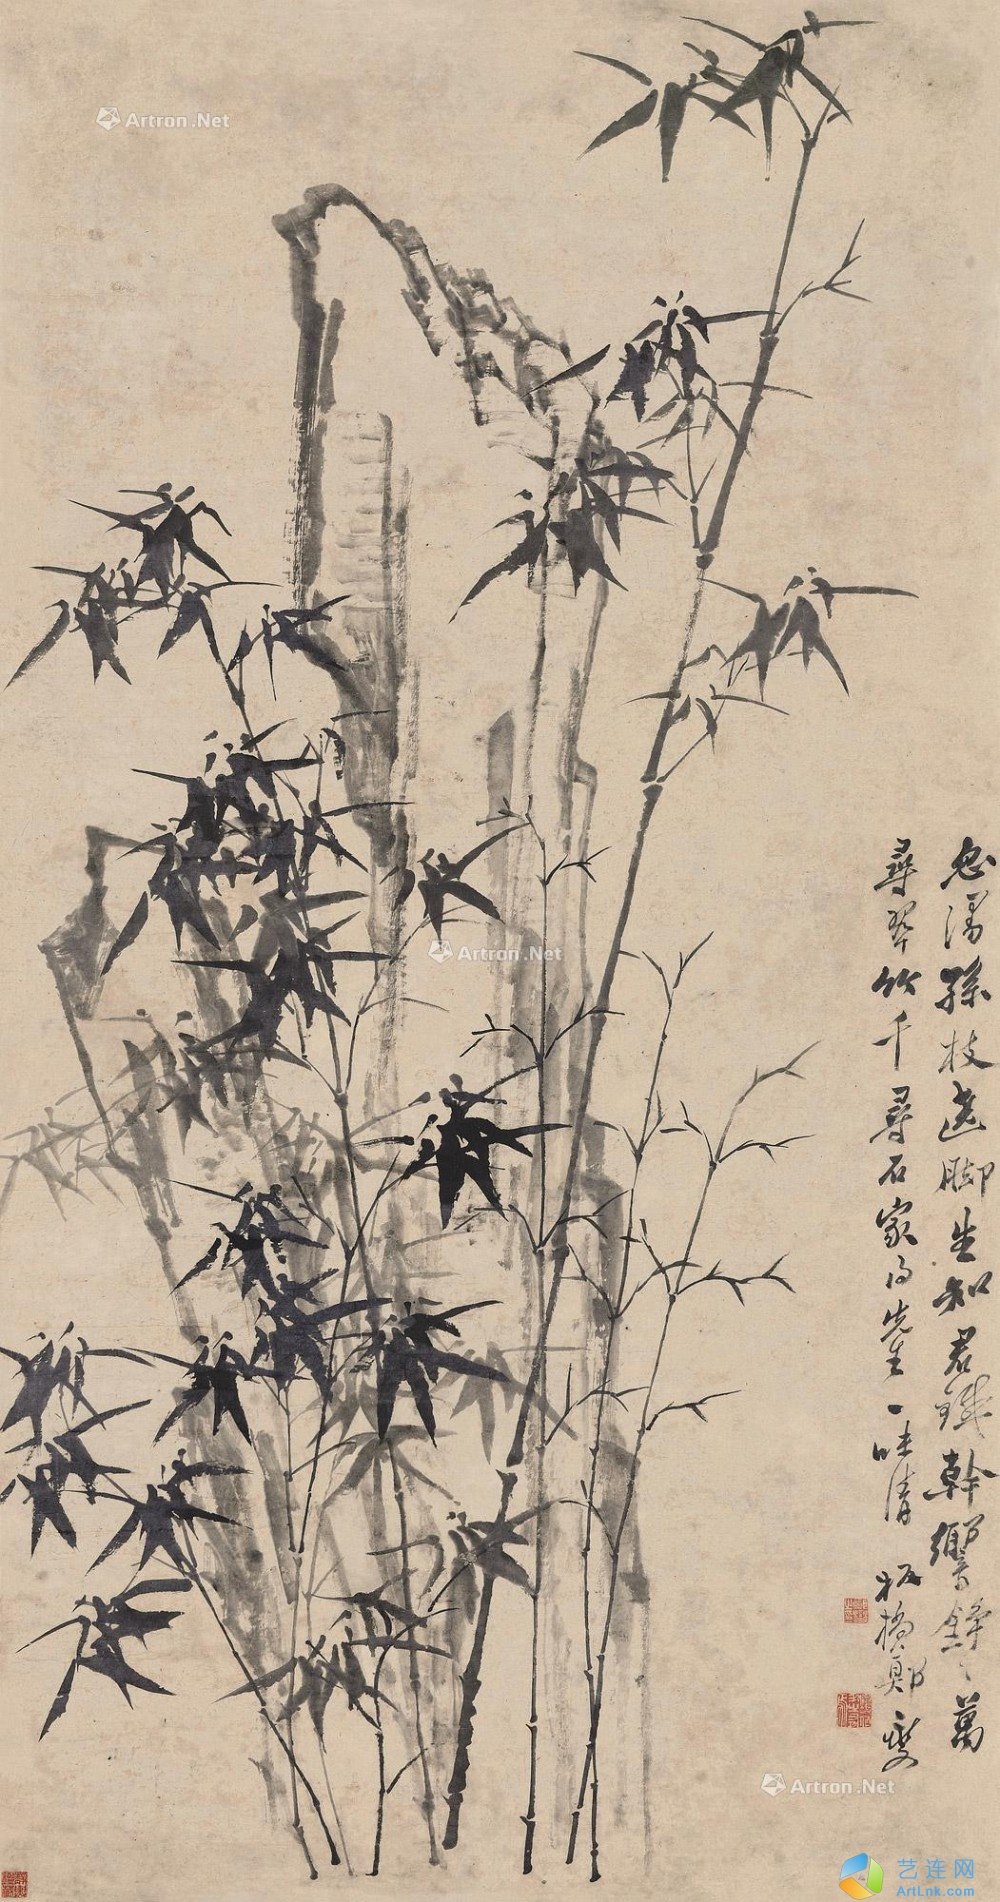 Artron.Net
忽漫孫枝遶脚生知君鐵幹響錚〻萬
尋翠竹千尋石家先生一味清 板橋鄭燮
Artron.Net
Artron.Net
艺连网
ArtLnk.com